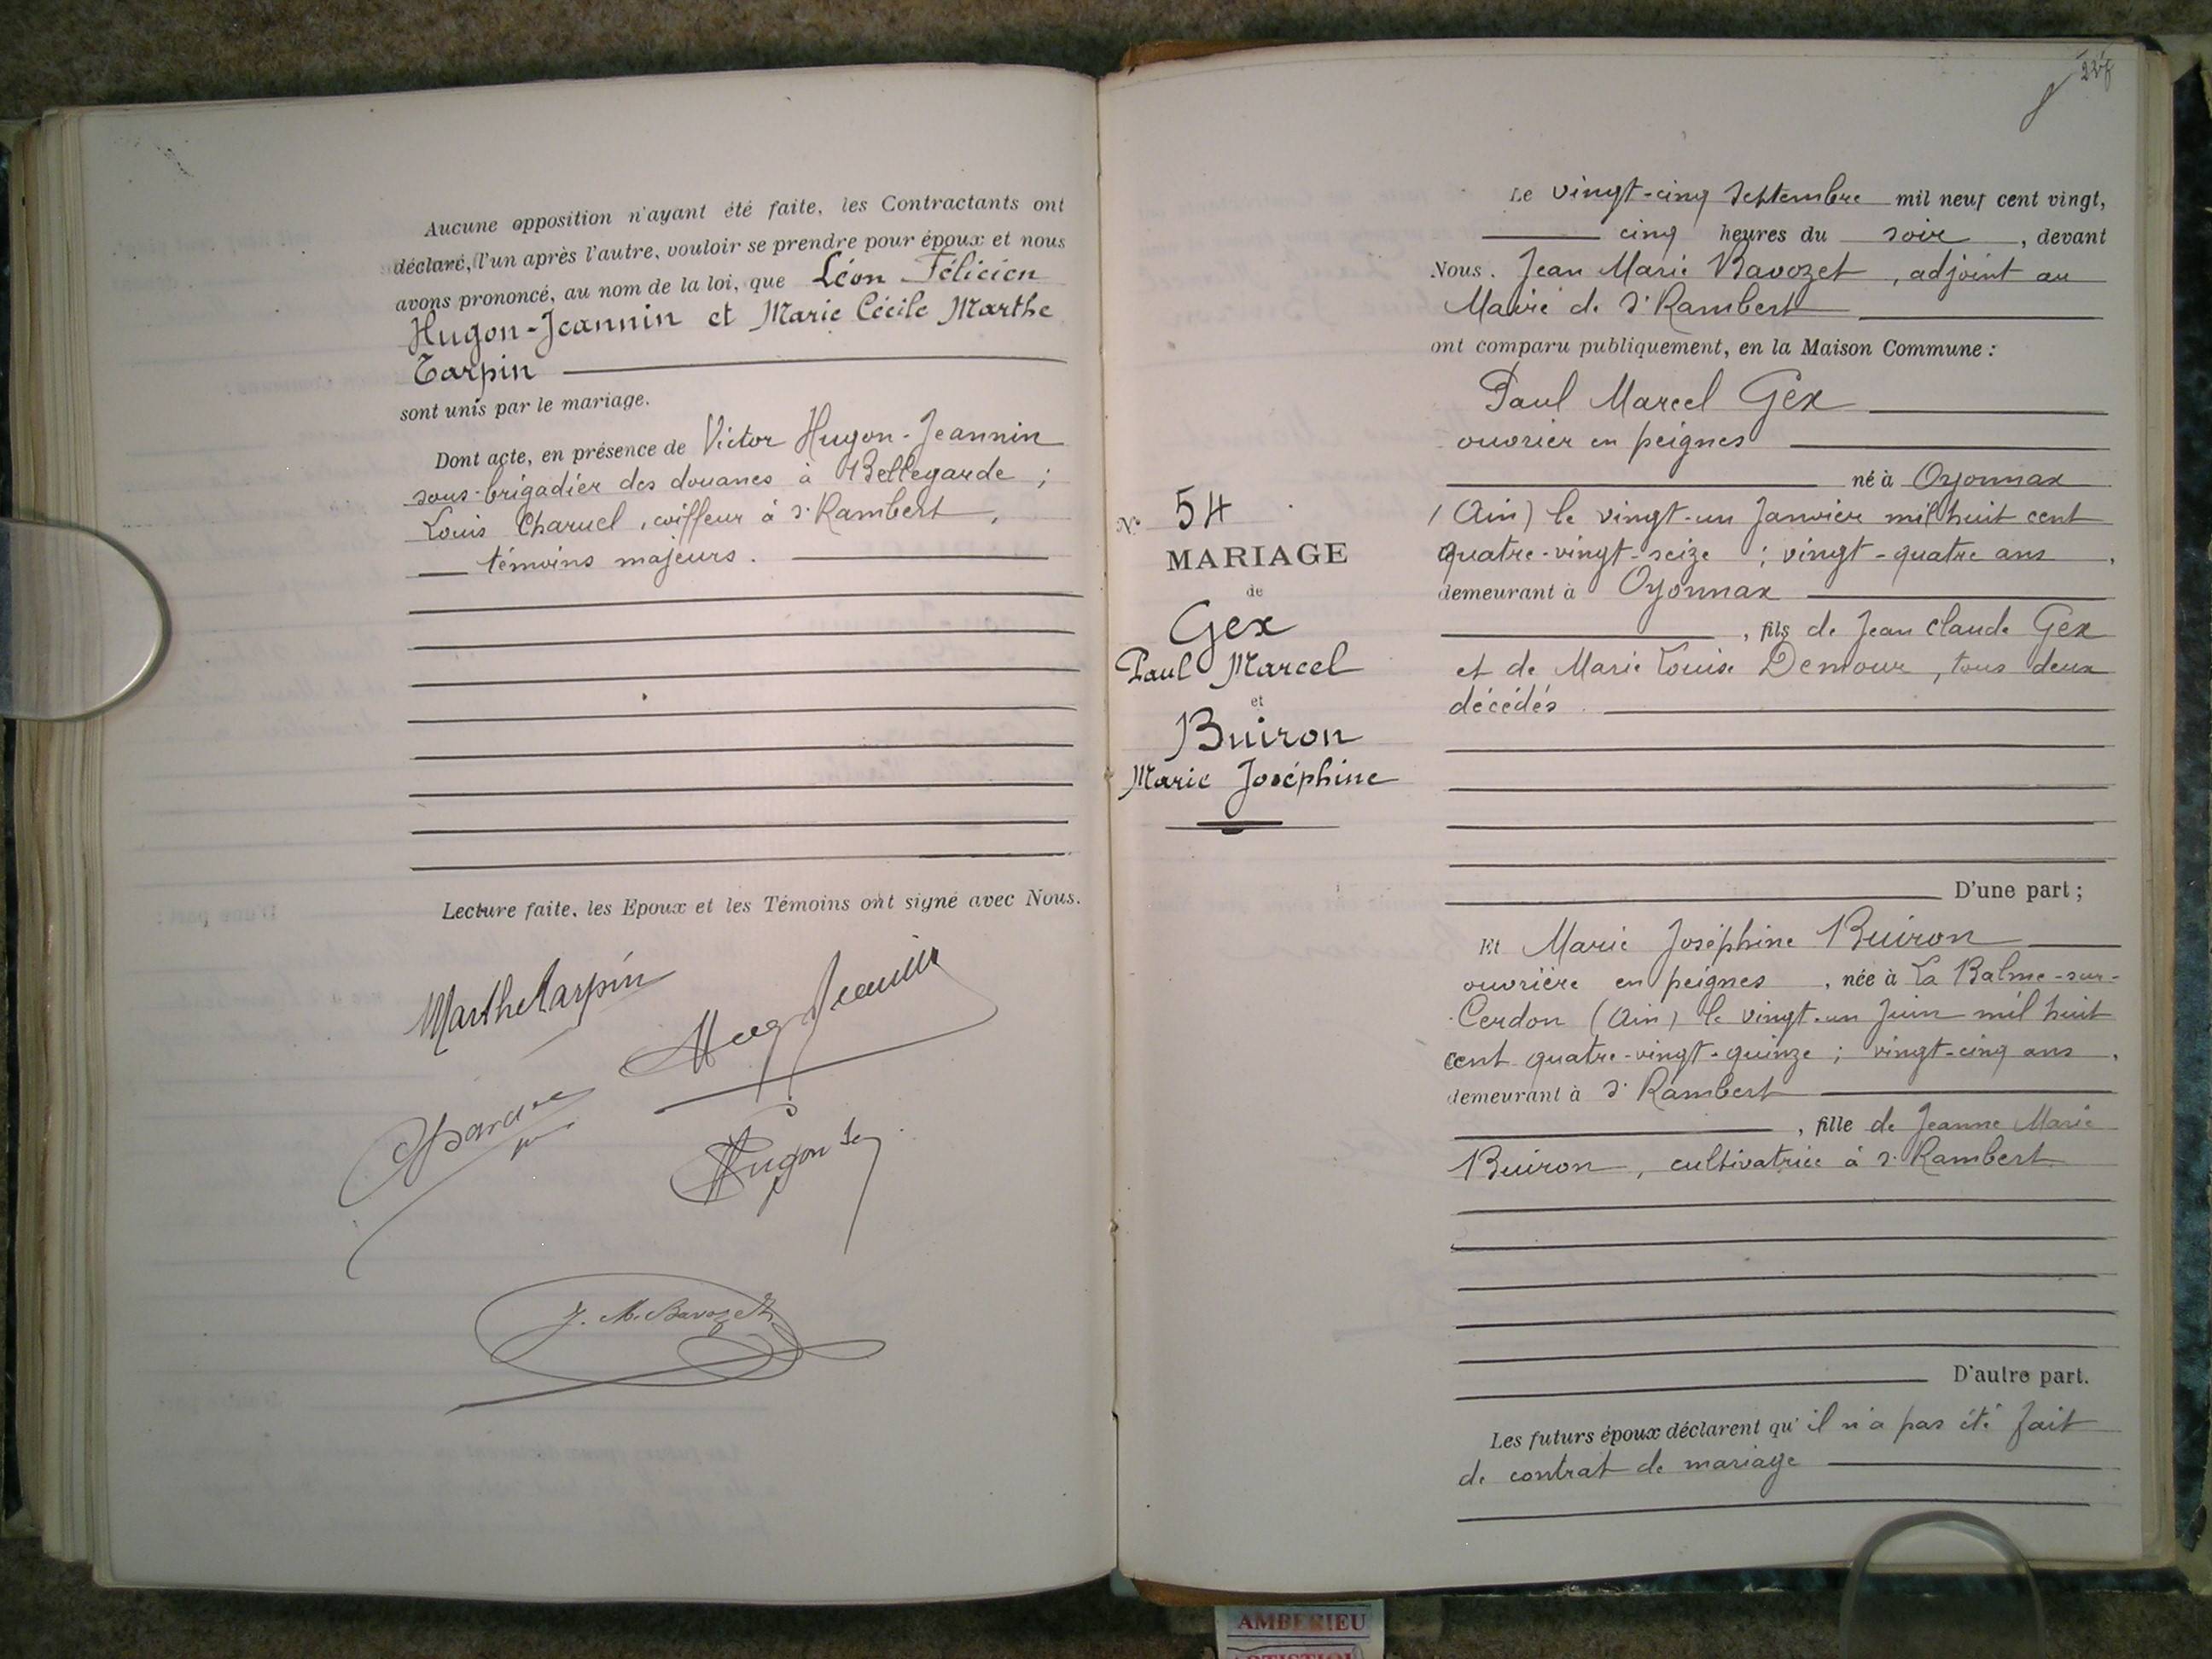 Aucune opposition n'ayant été faite, les Contractants ont
déclaré, l'un après l'autre, vouloir se prendre pour époux et nous
avons prononcé, au nom de la loi, que Léon Félicien
Hugon-Jeannin et Marie Cécile Marthe
Tarpin
sont unis par le mariage.
Dont acte, en présence de Victor Hugon-Jeannin
sous-brigadier des douanes à Bellegarde ;
Louis Charuel, coiffeur à St Rambert,
témoins majeurs.
Lecture faite, les Epoux et les Témoins ont signé avec Nous.
Marthe Tarpin
Hug Jeannin
Hugon Je
J. M. Bavozet
Le vingt-cinq Septembre mil neuf cent vingt,
cinq heures du soir, devant
Nous. Jean Marie Bavozet, adjoint au
Maire de St Rambert
ont comparu publiquement, en la Maison Commune :
Paul Marcel Gex
ouvrier en peignes
né à Oyonnax
(Ain) le vingt-un Janvier mil huit cent
quatre-vingt-seize ; vingt-quatre ans,
demeurant à Oyonnax
, fils de Jean Claude Gex
et de Marie Louise Demour, tous deux
décédés.
D'une part ;
N° 54
MARIAGE
de
Gex
Paul Marcel
et
Buiron
Marie Joséphine
Et Marie Joséphine Buiron
ouvrière en peignes, née à La Balme-sur-
Cerdon (Ain) le vingt-un Juin mil huit
cent quatre-vingt-quinze ; vingt-cinq ans,
demeurant à St Rambert
, fille de Jeanne Marie
Buiron, cultivatrice à St Rambert
D'autre part.
Les futurs époux déclarent qu'il n'a pas été fait
de contrat de mariage
AMBERIEU